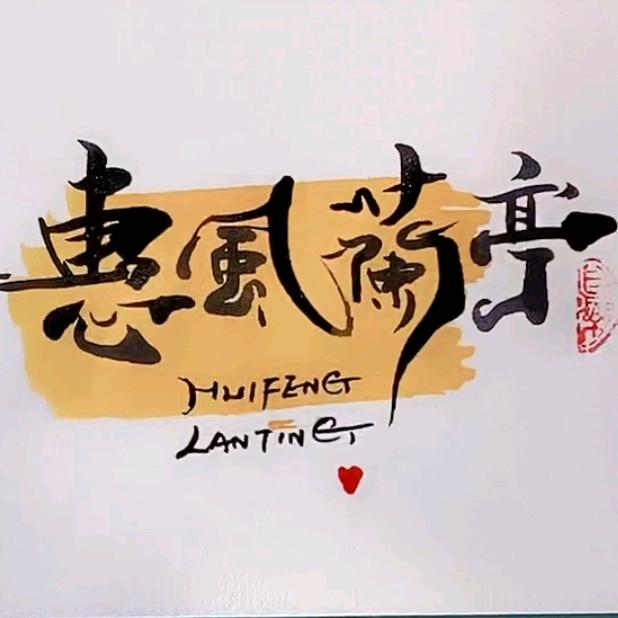 惠風蘭亭
HUIFENG
LANTING